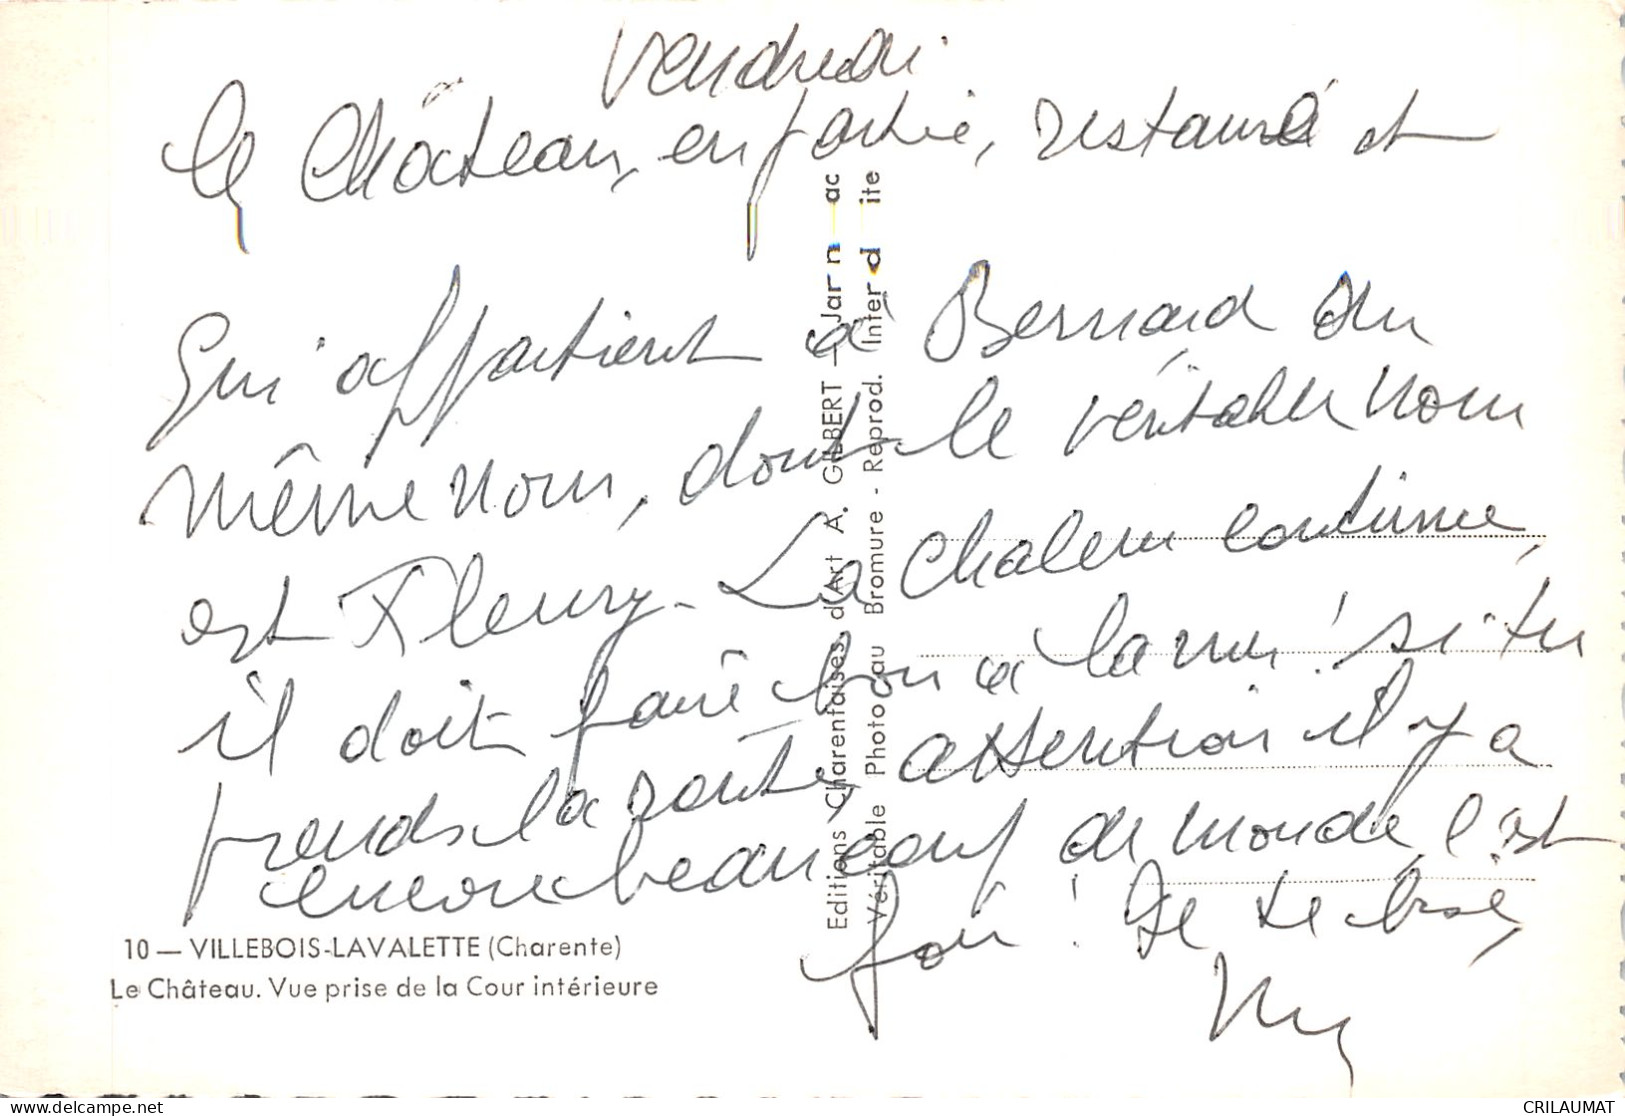 Vendredi
Ce Château, en partie, restauré et
qui appartient à Bernard du
même nom, dont le véritable nom
est Fleury - La chaleur continue,
il doit faire bon à la mer! si tu
prends la route, attention il y a
encore beaucoup de monde c'est
fou! Je te bise,
10 — VILLEBOIS-LAVALETTE (Charente)
Le Château. Vue prise de la Cour intérieure
Editions Charentaises d'Art A. GILBERT — Jarnac
Véritable Photo au Bromure - Reprod. Interdite
CRILAUMAT